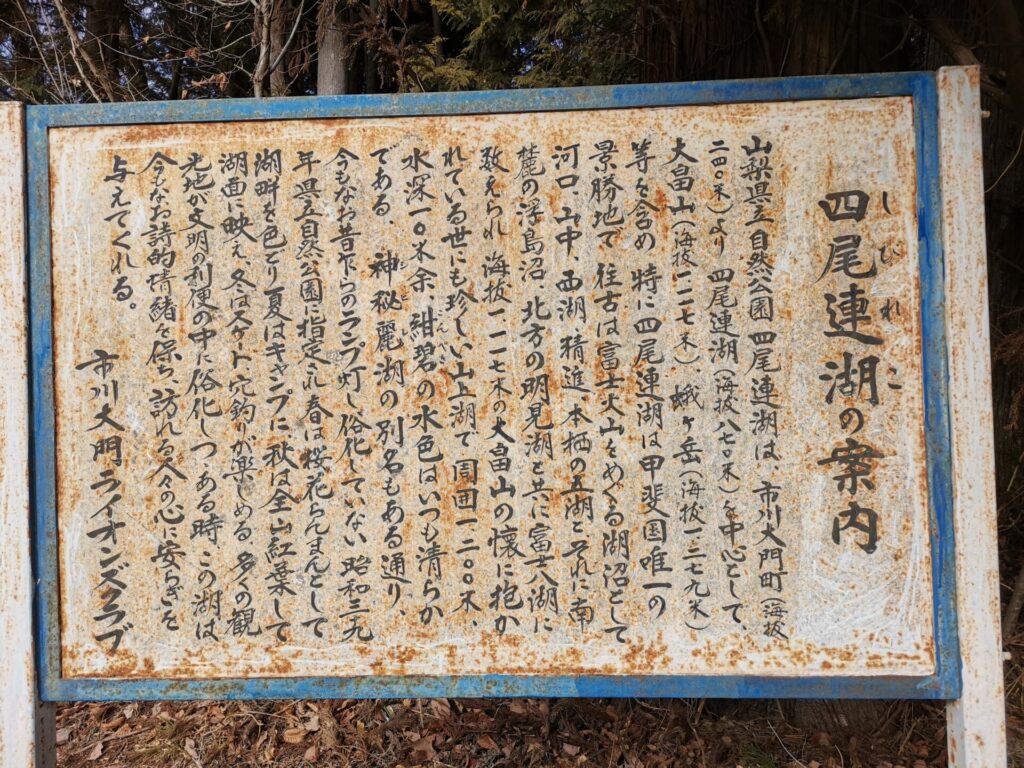 四尾連湖の案内
しびれこ
山梨県立自然公園四尾連湖は、市川大門町(海抜
二四〇米)より四尾連湖(海抜八七〇米)を中心として、
大畠山(海抜一一一七米)、蛾ヶ岳(海抜一二七九米)
等を含め 特に四尾連湖は甲斐国唯一の
景勝地で 往古は富士火山をめぐる湖沼として
河口、山中、西湖、精進、本栖の五湖とそれに南
麓の浮島沼 北方の明見湖と共に富士八湖に
数えられ 海抜一一一七米の大畠山の懐に抱か
れている世にも珍しい山上湖で 周囲一二〇〇米、
水深一〇米余、紺碧の水色はいつも清らか
こんぺき
である。 神秘麗湖の別名もある通り、
今もなお昔乍らのランプ灯し俗化していない 昭和三九
年県立自然公園に指定され 春は桜花らんまんとして
湖畔を色どり 夏はキャンプに 秋は全山紅葉して
湖面に映え、冬はスケート穴釣りが楽しめる 多くの観
光地が文明の利便の中に俗化しつゝある時、この湖は
今もなお詩的情緒を保ち、訪れる人々の心に安らぎを
与えてくれる。
市川大門ライオンズクラブ